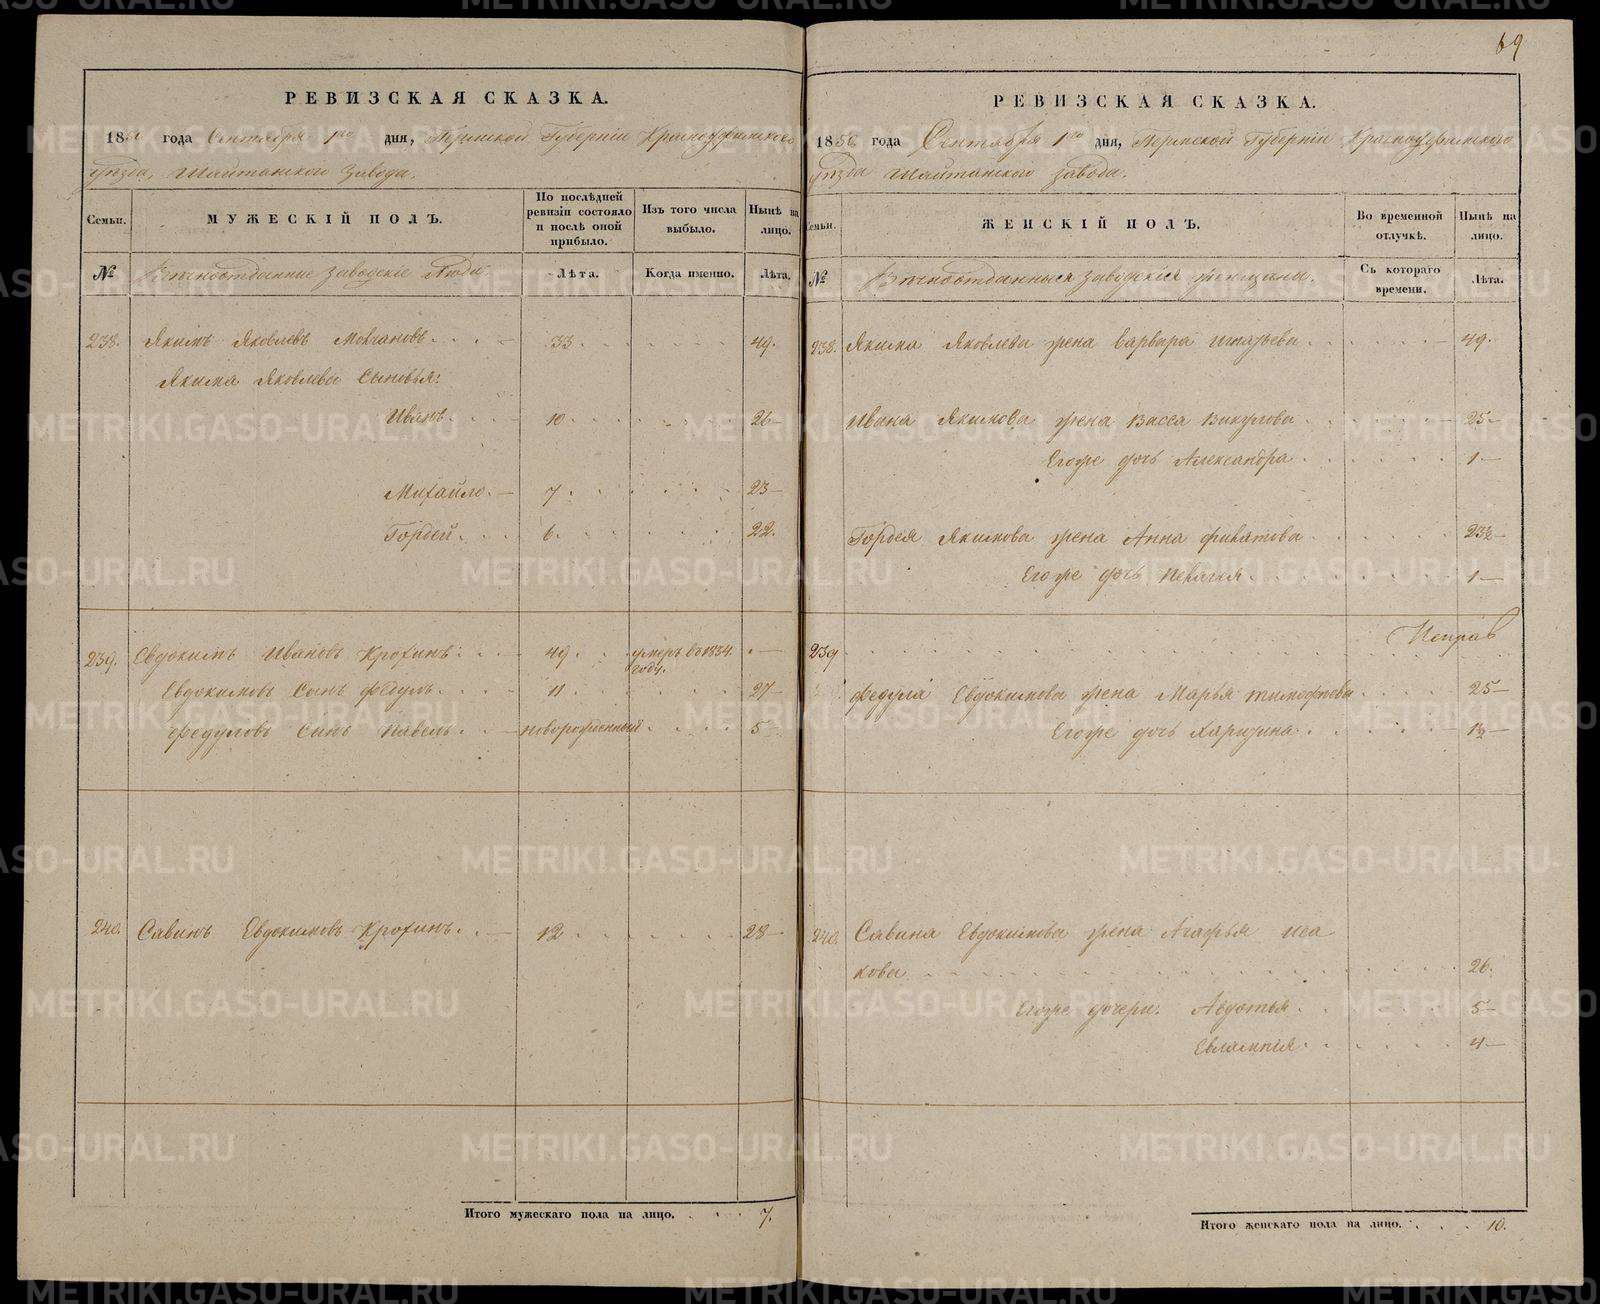 69
РЕВИЗСКАЯ СКАЗКА.
1850 года Сентября 1го дня, Пермской Губернии Красноуфимского
уезда, Шайтанского завода.
Семьи.
МУЖЕСКІЙ ПОЛЪ.
По послѣдней ревизіи состояло и послѣ оной прибыло.
Изъ того числа выбыло.
Нынѣ на лицо.
№
Вѣчноотданные заводскіе люди
Лѣта.
Когда именно.
Лѣта.
238. Якимъ Яковлевъ Молчановъ 33 49.
Якима Яковлева Сыновья:
Иванъ 10 26
Михайло 7 23
Гордей 6 22.
239. Евдокимъ Ивановъ Крохинъ 49 умеръ въ 1834 году. —
Евдокимовъ Сынъ Федулъ 11 27
Федуловъ Сынъ Павелъ новорожденный 5
240. Савинъ Евдокимовъ Крохинъ 12 28
Итого мужескаго пола на лицо. 7.
РЕВИЗСКАЯ СКАЗКА.
1850 года Сентября 1го дня, Пермской Губерніи Красноуфимского
уезда Шайтанского завода.
Семьи.
ЖЕНСКІЙ ПОЛЪ.
Во временной отлучкѣ.
Нынѣ на лицо.
№
Вѣчноотданныя заводскія женщины.
Съ котораго времени.
Лѣта.
238. Якима Яковлева жена Варвара Игнатьева 49.
Ивана Якимова жена Васса Викулова 25
Егоже дочь Александра 1
Гордея Якимова жена Анна Филатова 23½
Егоже дочь Пелагея 1
239
Федула Евдокимова жена Марья Тимофеева 25
Егоже дочь Харитина 1½
240. Савина Евдокимова жена Агафья Иса
кова 26.
Егоже дочери: Авдотья 5
Евлампія 4
Итого женскаго пола на лицо. 10.
METRIKI.GASO-URAL.RU